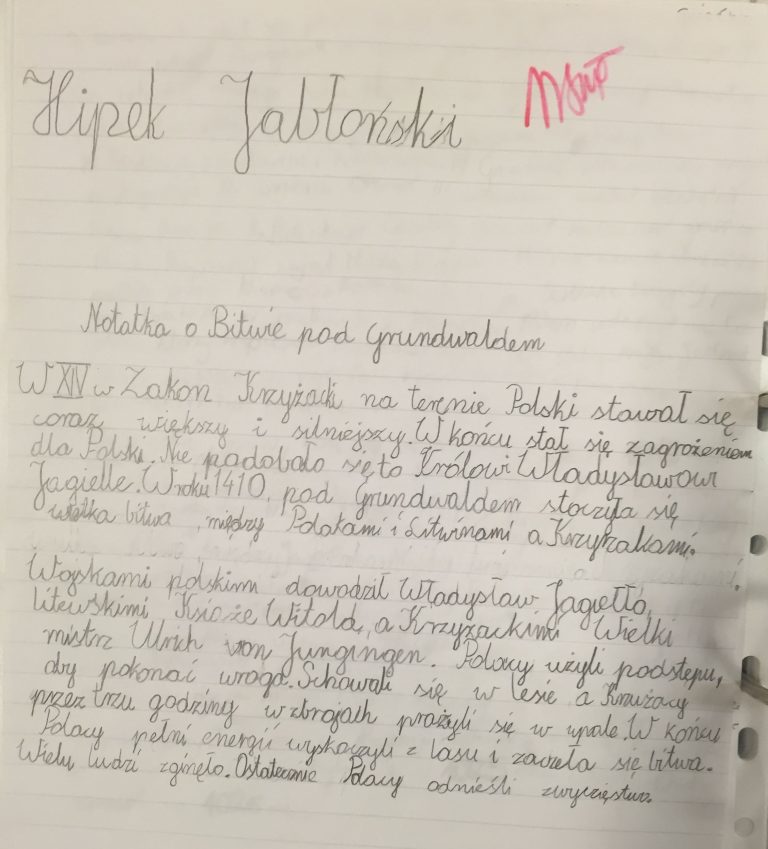 Hipek Jabłoński
Notatka o Bitwie pod Grundwaldem
W XIV w Zakon Krzyżacki na terenie Polski stawał się
coraz większy i silniejszy. W końcu stał się zagrożeniem
dla Polski. Nie podobało się to Królowi Władysławowi
Jagielle. W roku 1410, pod Grundwaldem stoczyła się
wielka bitwa, między Polakami i Litwinami a Krzyżakami.
Wojskami polskimi dowodził Władysław Jagiełło,
litewskimi Książe Witold, a Krzyżackimi Wielki
mistrz Ulrich von Jungingen. Polacy użyli podstępu,
aby pokonać wroga. Schowali się w lesie a Krzyżacy
przez trzy godziny w zbrojach prażyli się w upale. W końcu
Polacy pełni energii wyskoczyli z lasu i zaczeła się bitwa.
Wielu ludzi zginęło. Ostatecznie Polacy odnieśli zwycięstwo.